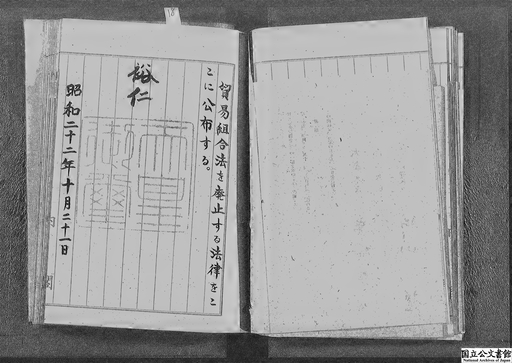 18
貿易組合法を廃止する法律をこ
こに公布する。
裕仁
天皇御璽
昭和二十二年十月二十一日
内閣
国立公文書館
National Archives of Japan